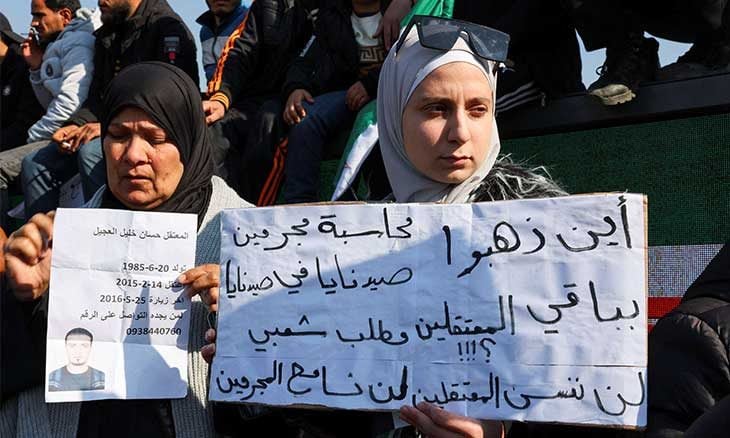 المعتقل حسان خليل العجيل
تولد 20-6-1985
اعتقل 14-2-2015
اخر زيارة 25-5-2016
لمن يجده التواصل على الرقم
0938440760
أين ذهبوا
بباقي المعتقلين
؟!!!
محاسبة مجرمين
صيدنايا في صيدنايا
مطلب شعبي
لن ننسى المعتقلين لن نسامح المجرمين